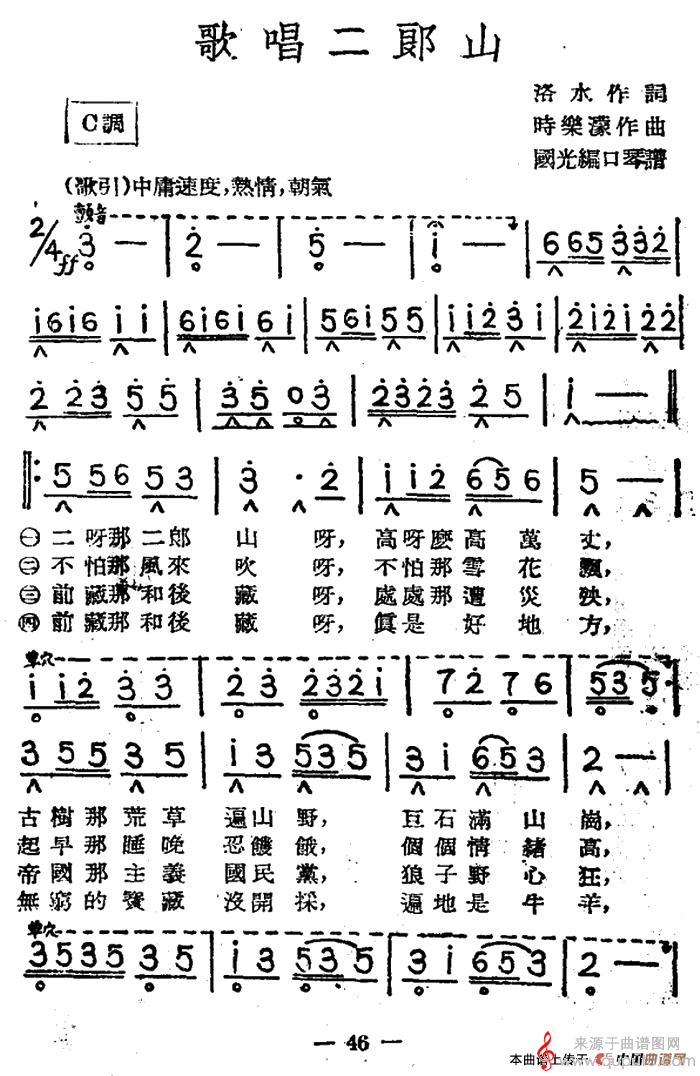 歌唱二郞山
洛水作詞
C調
時樂濛作曲
國光編口琴譜
(歌引)中庸速度,熱情,朝氣
顫音
2/4 ff 3 — | 2 — | 5 — | i — | 6 6 6 5 3 3 3 2 |
i 6 i 6 i i | 6 i 6 i 6 i | 5 6 i 5 5 | i i 2 3 i | 2 i 2 i 2 2 |
2 2 3 5 5 | 3 5 0 3 | 2 3 2 3 2 5 | i — ‖
‖: 5 5 6 5 3 | 3 · 2 | i i 2 6 5 6 | 5 — |
㊀二呀那二郎 山 呀, 高呀麽高 萬 丈,
㊁不怕那風來 吹 呀, 不怕那雪 花 飄,
㊂前藏那和後 藏 呀, 處處那遭 災 殃,
㊃前藏那和後 藏 呀, 眞是 好 地 方,
單穴
i i 2 3 3 | 2 3 2 3 2 i | 7 2 7 6 | 5 3 5 :
3 5 5 3 5 | i 3 5 3 5 | 3 i 6 5 3 | 2 — |
古樹那荒草 遍山 野, 巨石滿 山 崗,
起早那睡晚 忍饑 餓, 個個情 緒 高,
帝國那主義 國民 黨, 狼子野 心 狂,
無窮的寶藏 沒開 採, 遍地是 牛 羊,
單穴
3 5 3 5 3 5 | i 3 5 3 5 | 3 i 6 5 3 | 2 — |
— 46 —
来源于曲谱图网
本曲谱上传于 中国曲谱网